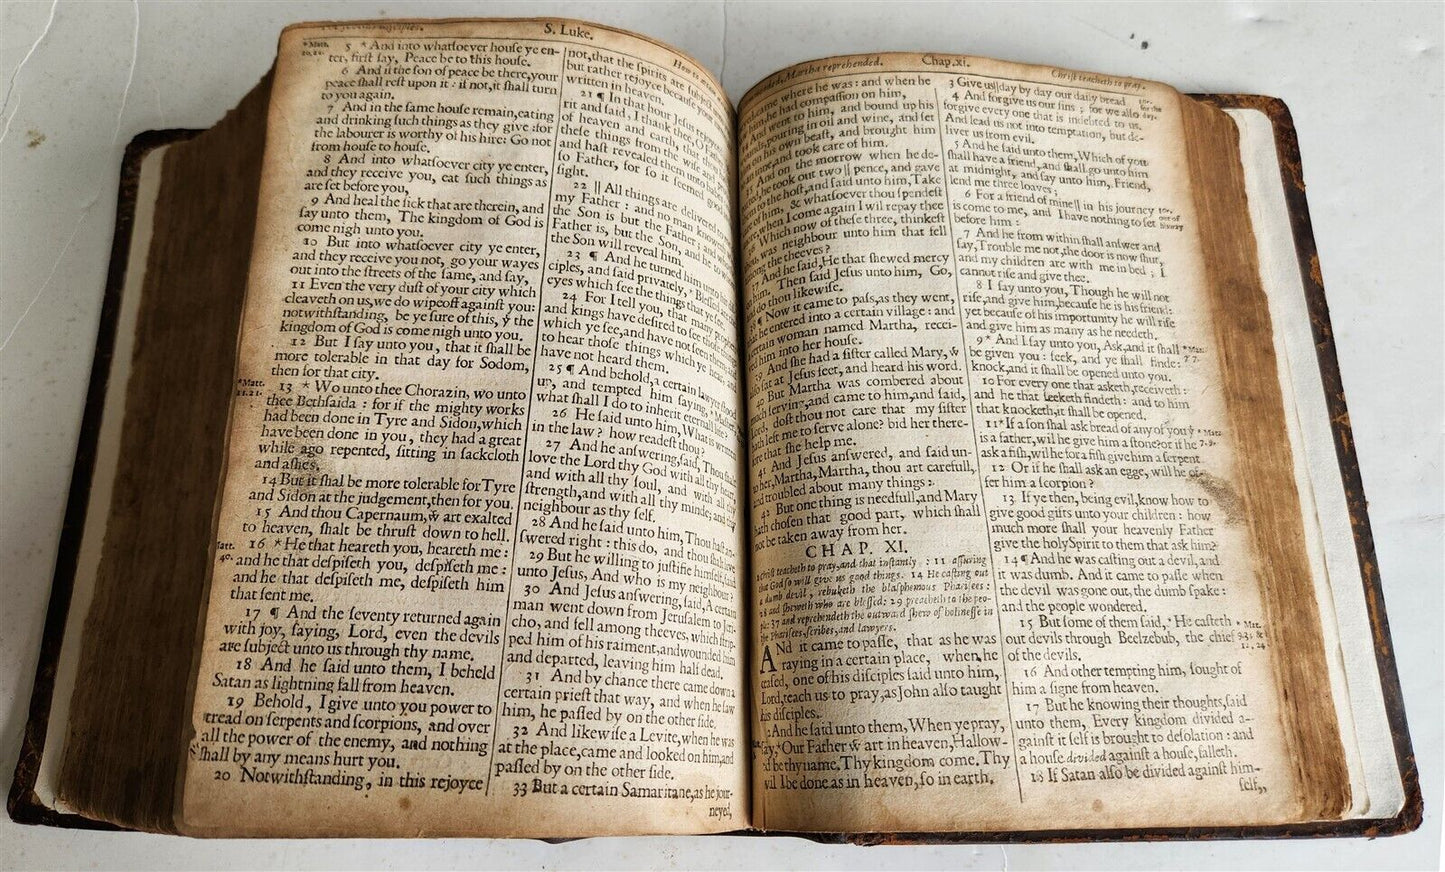 S. Luke.
* Matt.
20,21.
5 * And into whatſoever houſe ye en-
ter, firſt ſay, Peace be to this houſe.
6 And if the ſon of peace be there, your
peace ſhall reſt upon it: if not, it ſhall turn
to you again.
7 And in the ſame houſe remain, eating
and drinking ſuch things as they give: for
the labourer is worthy of his hire: Go not
from houſe to houſe.
8 And into whatſoever city ye enter,
and they receive you, eat ſuch things as
are ſet before you,
9 And heal the ſick that are therein, and
ſay unto them, The kingdom of God is
come nigh unto you.
10 But into whatſoever city ye enter,
and they receive you not, go your wayes
out into the ſtreets of the ſame, and ſay,
11 Even the very duſt of your city which
cleaveth on us, we do wipe off againſt you:
notwithſtanding, be ye ſure of this, ẏ the
kingdom of God is come nigh unto you.
12 But I ſay unto you, that it ſhall be
more tolerable in that day for Sodom,
then for that city.
* Matt.
11.21.
13 * Wo unto thee Chorazin, wo unto
thee Bethſaida: for if the mighty works
had been done in Tyre and Sidon, which
have been done in you, they had a great
while ago repented, ſitting in ſackcloth
and aſhes.
14 But it ſhal be more tolerable for Tyre
and Sidon at the judgement, then for you.
15 And thou Capernaum, ẇ art exalted
to heaven, ſhalt be thruſt down to hell.
Matt.
40.
16 * He that heareth you, heareth me:
and he that deſpiſeth you, deſpiſeth me:
and he that deſpiſeth me, deſpiſeth him
that ſent me.
17 ¶ And the ſeventy returned again
with joy, ſaying, Lord, even the devils
are ſubject unto us through thy name.
18 And he ſaid unto them, I beheld
Satan as lightning fall from heaven.
19 Behold, I give unto you power to
tread on ſerpents and ſcorpions, and over
all the power of the enemy, and nothing
ſhall by any means hurt you.
20 Notwithſtanding, in this rejoyce
not, that the ſpirits are ſubject
but rather rejoyce becauſe your
written in heaven.
21 ¶ In that hour Jeſus
rit and ſaid, I thank thee,
of heaven and earth, that
theſe things from the wiſe and
and haſt revealed them unto
ſo Father, for ſo it ſeemed good
ſight.
22 || All things are delivered
my Father: and no man knoweth
the Son is but the Father; and
Father is, but the Son, and he to
the Son will reveal him.
23 ¶ And he turned him unto his
ciples, and ſaid privately, * Bleſſed
eyes which ſee the things that ye ſee.
24 For I tell you, that many
and kings have deſired to ſee thoſe
which ye ſee, and have not ſeen them;
to hear thoſe things which ye hear,
have not heard them.
25 ¶ And behold, a certain lawyer ſtood
up, and tempted him ſaying, * Maſter,
what ſhall I do to inherit eternal life?
26 He ſaid unto him, What is written
in the law? how readeſt thou?
27 And he anſwering, ſaid, Thou ſhalt
love the Lord thy God with all thy heart,
and with all thy ſoul, and with all thy
ſtrength, and with all thy minde; and thy
neighbour as thy ſelf.
28 And he ſaid unto him, Thou haſt an-
ſwered right: this do, and thou ſhalt live.
29 But he willing to juſtifie himſelf, ſaid
unto Jeſus, And who is my neighbour?
30 And Jeſus anſwering, ſaid, A certain
man went down from Jeruſalem to Jeri-
cho, and fell among theeves, which ſtrip-
ped him of his raiment, and wounded him
and departed, leaving him half dead.
31 And by chance there came down a
certain prieſt that way, and when he ſaw
him, he paſſed by on the other ſide.
32 And likewiſe a Levite, when he was
at the place, came and looked on him, and
paſſed by on the other ſide.
33 But a certain Samaritane, as he jour-
neyed,
Martha reprehended.
Chap.xi.
Chriſt teacheth to pray.
came where he was: and when he
him, he had compaſſion on him,
And went to him, and bound up his
wounds, pouring in oil and wine, and ſet
on his own beaſt, and brought him
inne, and took care of him.
And on the morrow when he de-
parted, he took out two || pence, and gave
to the hoſt, and ſaid unto him, Take
of him, & whatſoever thou ſpendeſt
more, when I come again I wil repay thee
Which now of theſe three, thinkeſt
thou, was neighbour unto him that fell
among the theeves?
37 And he ſaid, He that ſhewed mercy
on him. Then ſaid Jeſus unto him, Go,
and do thou likewiſe.
38 ¶ Now it came to paſs, as they went,
that he entered into a certain village: and
a certain woman named Martha, recei-
ved him into her houſe.
39 And ſhe had a ſiſter called Mary, ẇ
alſo ſat at Jeſus feet, and heard his word.
40 But Martha was combered about
much ſerving, and came to him, and ſaid,
Lord, doſt thou not care that my ſiſter
hath left me to ſerve alone? bid her there-
fore that ſhe help me.
41 And Jeſus anſwered, and ſaid un-
to her, Martha, Martha, thou art carefull,
and troubled about many things:
42 But one thing is needfull, and Mary
hath choſen that good part, which ſhall
not be taken away from her.
CHAP. XI.
1 Chriſt teacheth to pray, and that inſtantly: 11 aſſuring
that God ſo will give us good things. 14 He caſting out
a dumb devil, rebuketh the blaſphemous Phariſees:
28 and ſheweth who are bleſſed: 29 preacheth to the peo-
ple: 37 and reprehendeth the outward ſhew of holineſſe in
the Phariſees, ſcribes, and lawyers.
ANd it came to paſſe, that as he was
praying in a certain place, when he
ceaſed, one of his diſciples ſaid unto him,
Lord, teach us to pray, as John alſo taught
his diſciples.
2 And he ſaid unto them, When ye pray,
ſay, * Our Father ẇ art in heaven, Hallow-
ed be thy name. Thy kingdom come. Thy
will be done as in heaven, ſo in earth.
3 Give us || day by day our daily bread
4 And forgive us our ſins; for we alſo
forgive every one that is indebted to us.
And lead us not into temptation, but de-
liver us from evil.
5 And he ſaid unto them, Which of you
ſhall have a friend, and ſhall go unto him
at midnight, and ſay unto him, Friend,
lend me three loaves;
6 For a friend of mine || in his journey
is come to me, and I have nothing to ſet
before him:
||Or,
out of
his way
7 And he from within ſhall anſwer and
ſay, Trouble me not, the door is now ſhut,
and my children are with me in bed; I
cannot riſe and give thee.
8 I ſay unto you, Though he will not
riſe, and give him, becauſe he is his friend:
yet becauſe of his importunity he will riſe
and give him as many as he needeth.
9 * And I ſay unto you, Ask, and it ſhall
be given you: ſeek, and ye ſhall finde:
knock, and it ſhall be opened unto you.
* Mat.
7 7.
10 For every one that asketh, receiveth:
and he that ſeeketh findeth: and to him
that knocketh, it ſhall be opened.
11 * If a ſon ſhal ask bread of any of you ẏ
is a father, wil he give him a ſtone? or if he
ask a fiſh, wil he for a fiſh give him a ſerpent
* Mat.
7.9.
12 Or if he ſhall ask an egge, will he of-
fer him a ſcorpion?
13 If ye then, being evil, know how to
give good gifts unto your children: how
much more ſhall your heavenly Father
give the holy Spirit to them that ask him?
14 ¶ And he was caſting out a devil, and
it was dumb. And it came to paſſe when
the devil was gone out, the dumb ſpake:
and the people wondered.
15 But ſome of them ſaid, * He caſteth
out devils through Beelzebub, the chief
of the devils.
* Mat.
9 34. &
12, 24
16 And other tempting him, ſought of
him a ſigne from heaven.
17 But he knowing their thoughts, ſaid
unto them, Every kingdom divided a-
gainſt it ſelf is brought to deſolation: and
a houſe divided againſt a houſe, falleth.
18 If Satan alſo be divided againſt him-
ſelf,